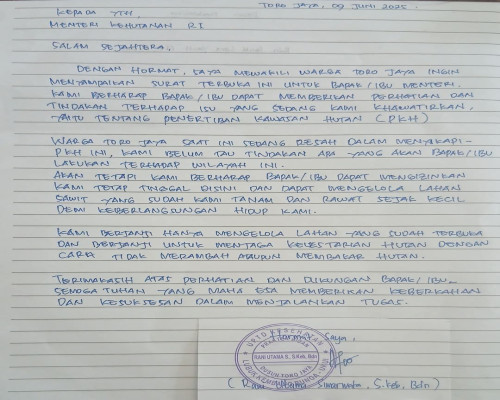 TORO JAYA, 09 JUNI 2025.
KEPADA YTH.
MENTERI KEHUTANAN RI
SALAM SEJAHTERA,
DENGAN HORMAT, SAYA MEWAKILI WARGA TORO JAYA INGIN
MENYAMPAIKAN SURAT TERBUKA INI UNTUK BAPAK/IBU MENTERI.
KAMI BERHARAP BAPAK/IBU DAPAT MEMBERIKAN PERHATIAN DAN
TINDAKAN TERHADAP ISU YANG SEDANG KAMI KHAWATIRKAN,
YAITU TENTANG PENERTIBAN KAWASAN HUTAN (PKH)
WARGA TORO JAYA SAAT INI SEDANG RESAH DALAM MENYIKAPI
PKH INI, KAMI BELUM TAU TINDAKAN APA YANG AKAN BAPAK/IBU
LAKUKAN TERHADAP WILAYAH INI.
AKAN TETAPI KAMI BERHARAP BAPAK/IBU DAPAT MENGIZINKAN
KAMI TETAP TINGGAL DISINI DAN DAPAT MENGELOLA LAHAN
SAWIT YANG SUDAH KAMI TANAM DAN RAWAT SEJAK KECIL
DEMI KEBERLANGSUNGAN HIDUP KAMI.
KAMI BERJANJI HANYA MENGELOLA LAHAN YANG SUDAH TERBUKA
DAN BERJANJI UNTUK MENJAGA KELESTARIAN HUTAN DENGAN
CARA TIDAK MERAMBAH ATAUPUN MEMBAKAR HUTAN.
TERIMAKASIH ATAS PERHATIAN DAN DUKUNGAN BAPAK/IBU.
SEMOGA TUHAN YANG MAHA ESA MEMBERIKAN KEBERKAHAN
DAN KESUKSESAN DALAM MENJALANKAN TUGAS.
Saya,
UPTD KESEHATAN
RANI UTAMA S., S.Keb, Bdn
DUSUN TORO JAYA
(Rani Utama S., S.Keb, Bdn)